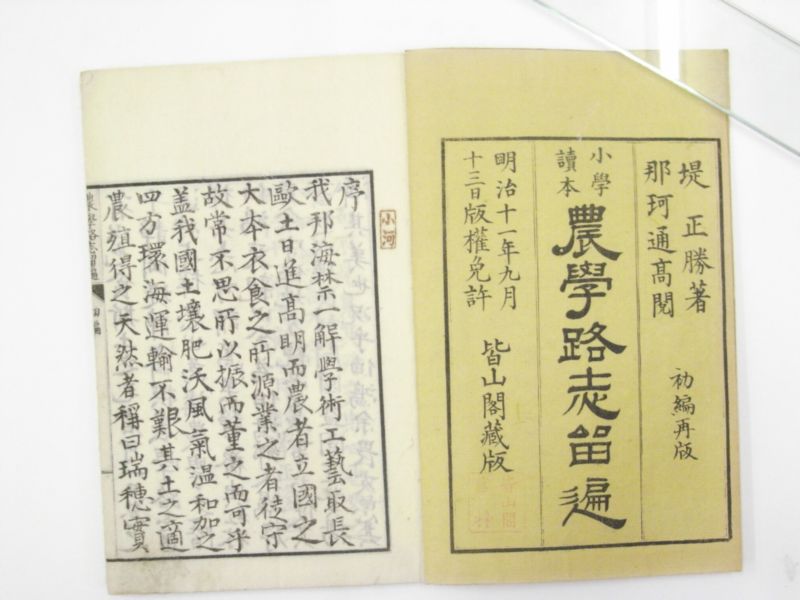 堤 正勝著
那珂通高閲
初編再版
小學
讀本
農學路志留遍
明治十一年九月
十三日版權免許
皆山閣藏版
皆山閣
小河
序
我邦海禁一解學術工藝取長
歐土日進高明而農者立國之
大本衣食之所源業之者徒守
故常不思所以振而董之而可乎
蓋我國土壤肥沃風氣温和加之
四方環海運輸不艱其土之適
農殖得之天然者稱曰瑞穂實
農學路志留遍